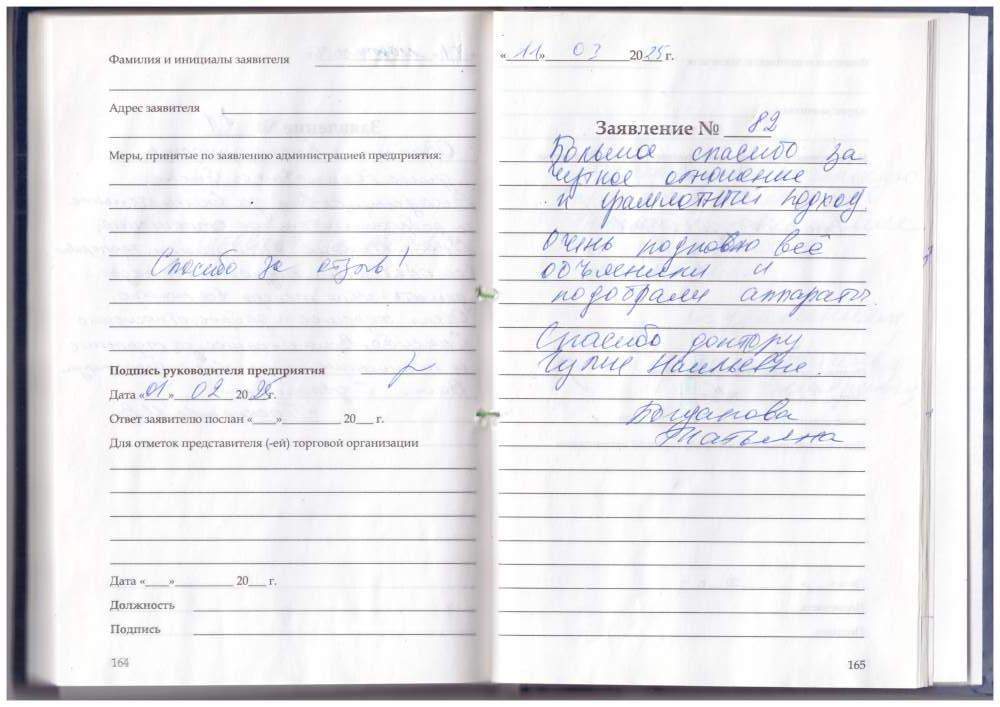 Фамилия и инициалы заявителя
Адрес заявителя
Меры, принятые по заявлению администрацией предприятия:
Спасибо за отзыв!
Подпись руководителя предприятия
Дата «01» 02 2025 г.
Ответ заявителю послан «___»__________ 20___ г.
Для отметок представителя (-ей) торговой организации
Дата «____»__________ 20___ г.
Должность
Подпись
164
«11» 03 2025 г.
Заявление № 82
Большое спасибо за
чуткое отношение
и грамотный подход.
Очень подробно всё
объяснили и
подобрали аппараты.
Спасибо доктору
Гулие Наильевне.
Богданова
Татьяна
165